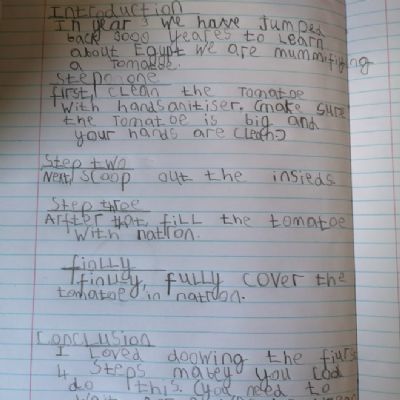 Introduction
In year 3 we have Jumped
back 3000 yeares to Learn
about Egypt we are mummifiying
a tomatoe.
Step one
first, clean the tomatoe
with handsanitiser. (make sure
the tomatoe is big and
your hands are clean)
Step two
Next, scoop out the insieds
Step three
Artter that, fill the tomatoe
with natron.
finlly
finlly, fully cover the
tomatoe in natron.
Conclusion
I Loved doowing the fiurst
4 steps mabey you cod
do this. (you need to